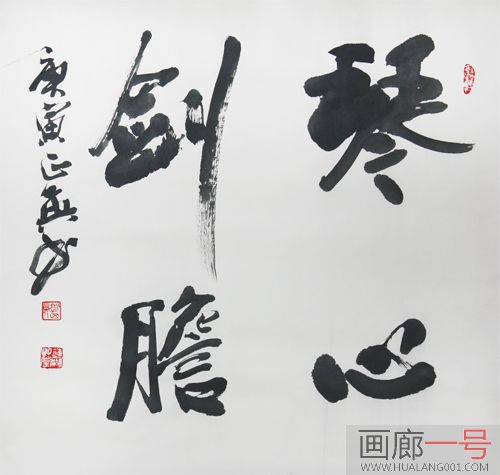 琴心
剑膽
庚寅正书
画廊一号
WWW.HUALANG001.COM